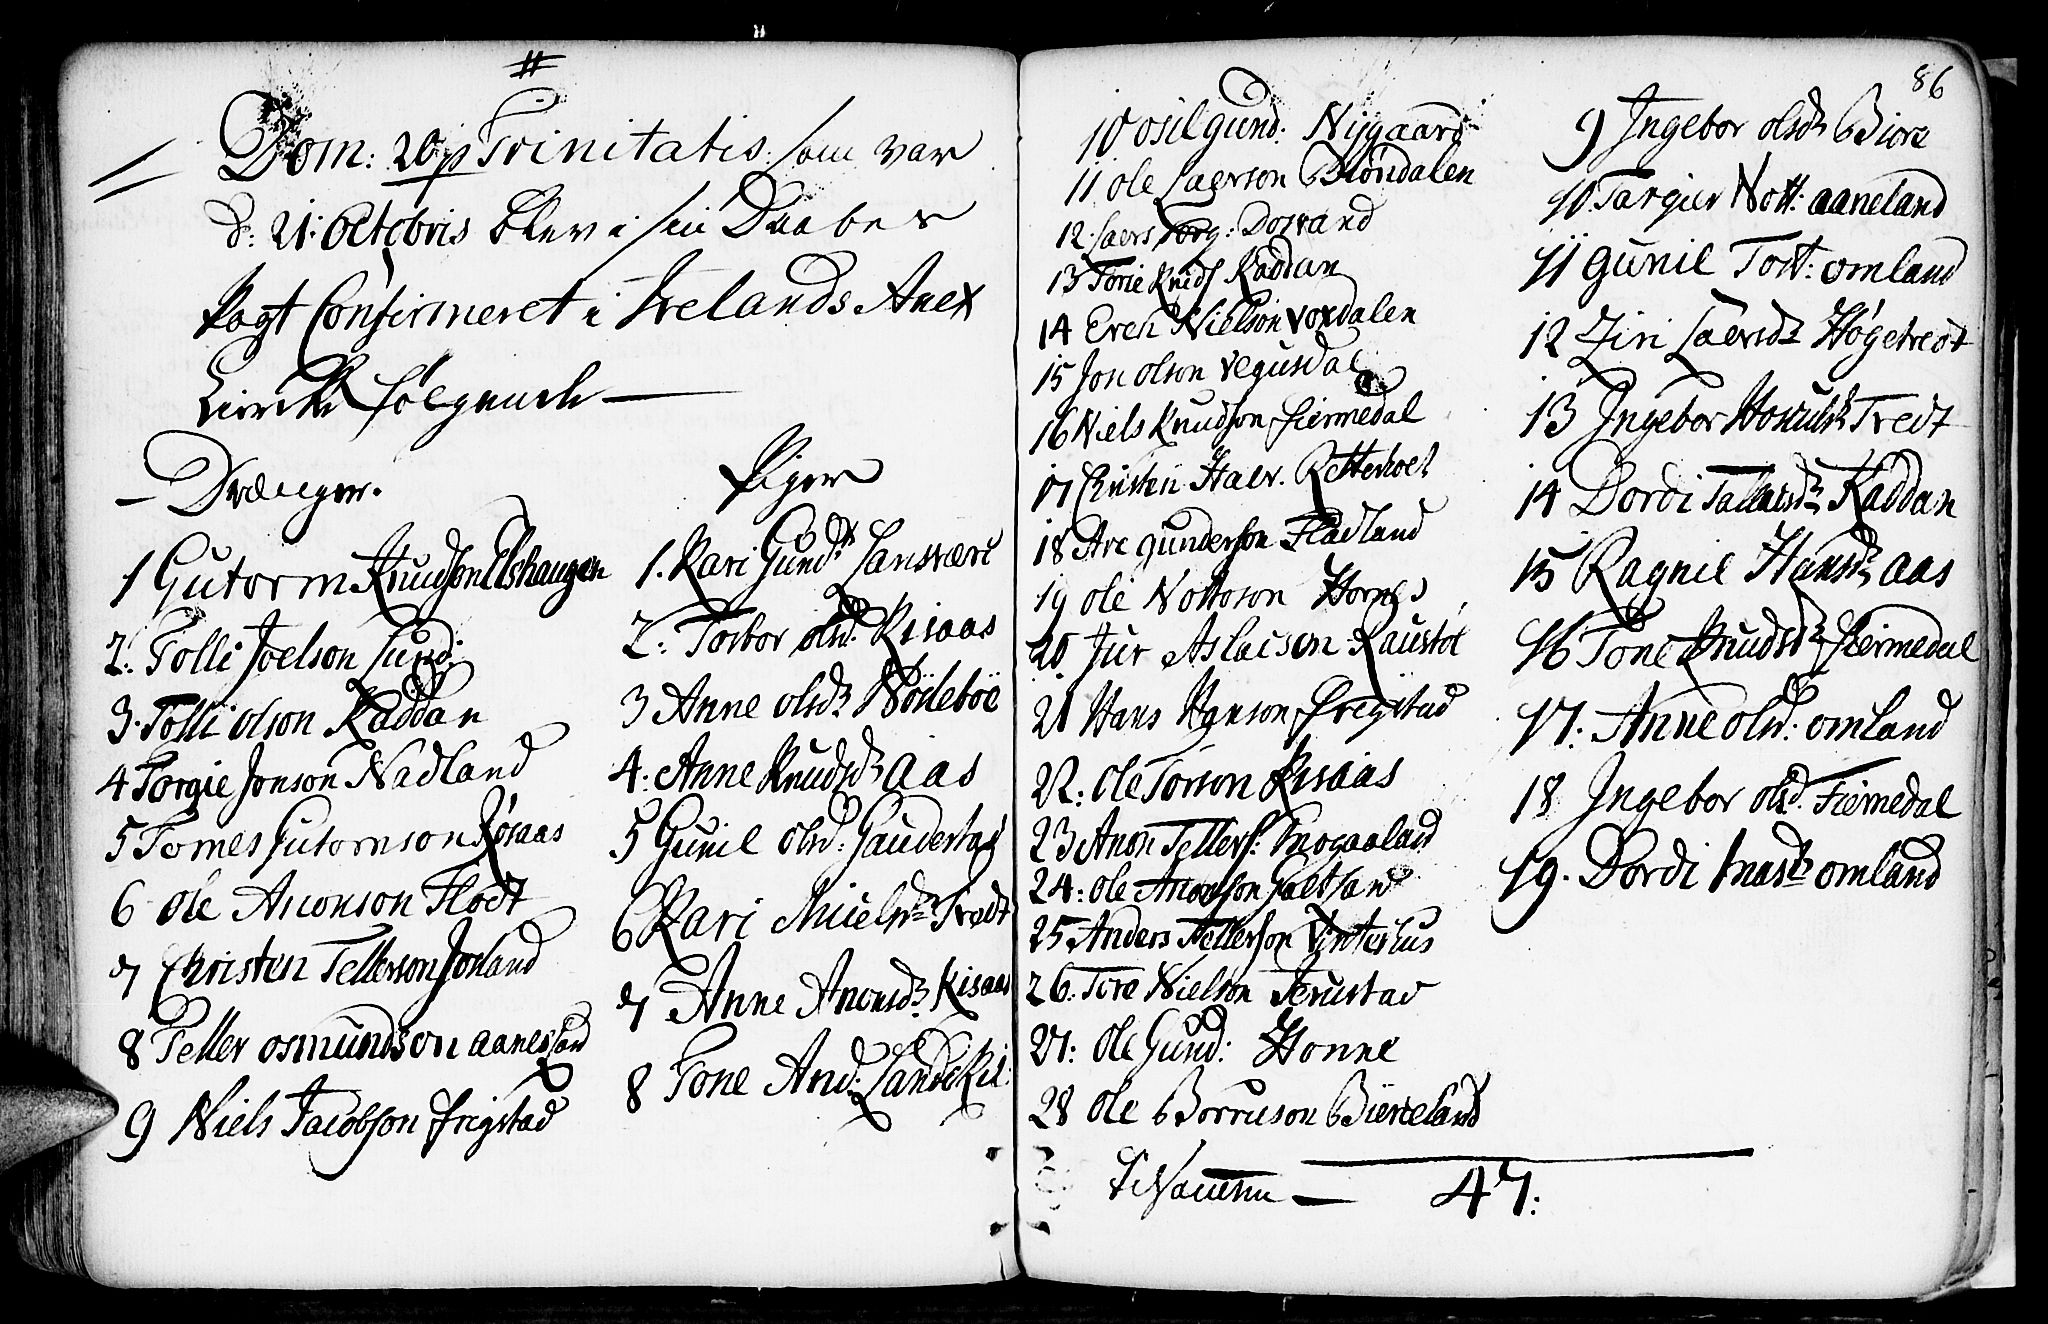 #
Dom: 20 p Trinitatis som var
d: 21: Octobris blev i sin Daabes
Pagt Confirmeret i Irelands Anex
Kircke følgende —
— Drænger.
1 Gutorm Knudson Elshaugen
2: Tolli Joelson Lund:
3. Tolli olson Kaddan
4 Torgie Jonson Nadland
5 Tomes Gutornson Røsaas
6 Ole Anonson Flodt
7 Christen Tellerson Jorland
8 Teller osmundson aanesland
9 Niels Jacobson frigstad
Piger
1. Kari Gundr Lansværi
2: Torbor olsd: Risaas
3 Anne olsdr Nödeböe
4: Anne Knudsdr aas
5 Gunil olsd: Gauderstad
6 Kari Mielsdr Trædt
7 Anne Anonsdr Risaas
8 Tone And: Landekil:
86
10 osil gund: Nygaard
11 ole Laerson Bröndalen
12. Laers Torg: Dosvand
13 Torie Knuds Kaddan
14 Even Nielson voxdalen
15 Jon olson vegusdal
16 Niels Knudson fiermedal
17 Christen Halv. Retterholt
18 Are gunderson Fladland
19 ole Nottoson Hornes
20 Jur Aslacson Raustöl
21 Hans Hanson frigstad
22: ole Torson Risaas
23 Anon Tellers: Traagaaland
24: ole Anonson Galtsand
25 Anders Tellerson Vinterhus
26: Tore Nielson Terustad
27: ole Gund: Honne
28 ole Borruson Biörceland
9 Ingebor olsdr Biore
10. Targier Nott: aaneland
11 gunil Tort: omland
12 Ziri Laersdr Høgetvedt
13 Ingebor Hovulsdr Tredt
14 Dordi Tallaksdr Kaddan
15 Ragnil Hansdr aas
16 Tone Knudsdr fiermedal
17: Anne olsd: omland
18 Ingebor olsd. Fiermedal
19. Dordi Knasdr omland
— 47: